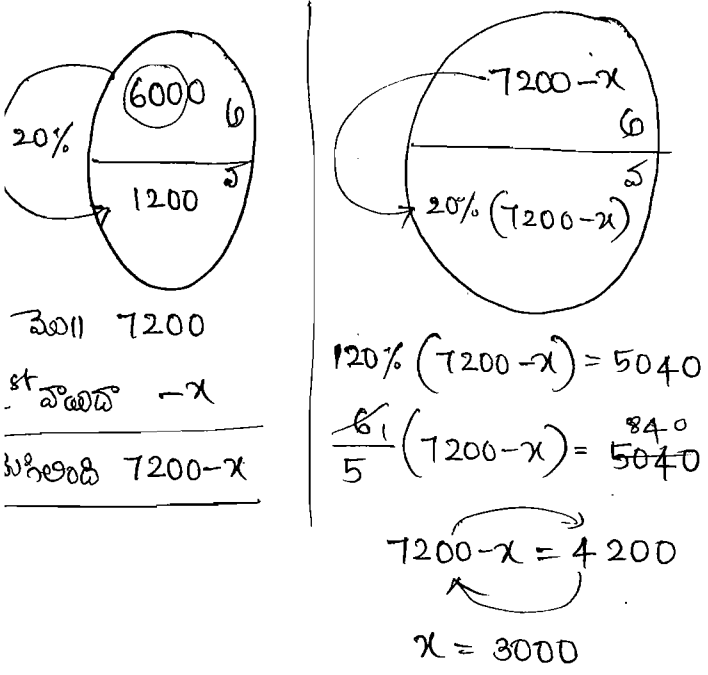 6000 అ
20%
1200 వ
మొ॥ 7200
st వాయిదా -x
మిగిలింది 7200-x
7200-x
అ
వ
20% (7200-x)
120% (7200-x) = 5040
6 1/5 (7200-x) = 5040 840
7200-x = 4200
x = 3000